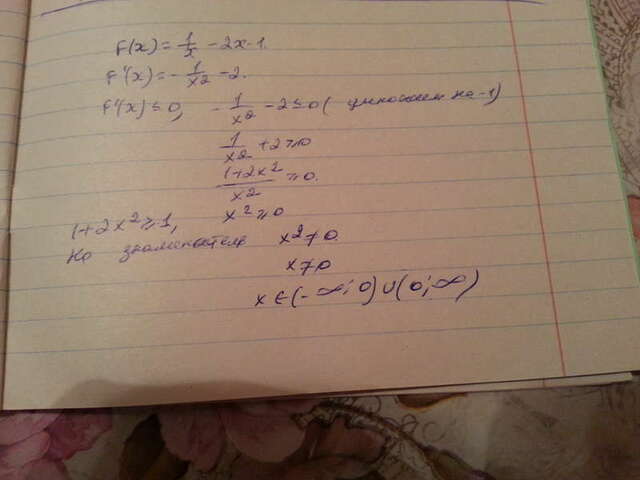 F(x) = 1/x - 2x - 1.
F'(x) = - 1/x2 - 2.
F'(x) ≤ 0, - 1/x2 - 2 ≤ 0 ( умножаем на -1)
1/x2 + 2 ≥ 0
(1+2x²)/x2 ≥ 0.
1+2x² ≥ 1, x² ≥ 0
Но знаменатель x² ≠ 0.
x ≠ 0
x ∈ (-∞; 0) ∪ (0; ∞)